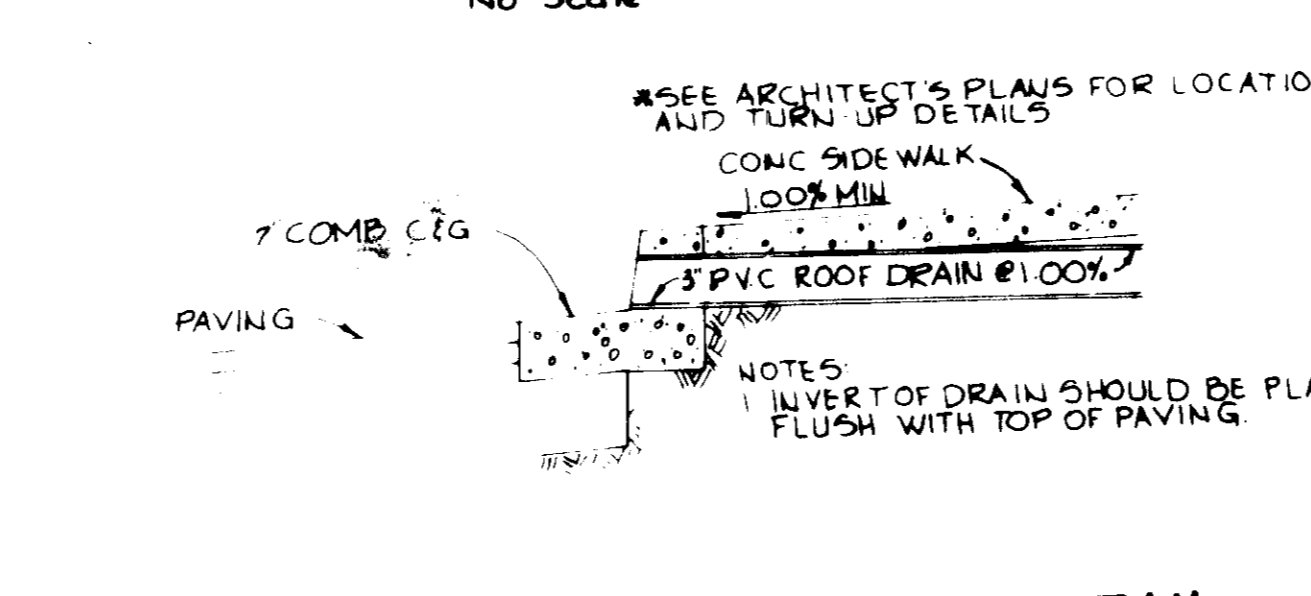 No Scale
*SEE ARCHITECT'S PLANS FOR LOCATIO
AND TURN-UP DETAILS
CONC SIDEWALK
1.00% MIN
COMB C&G
3" P.V.C ROOF DRAIN @ 1.00%
PAVING
NOTES:
1 INVERT OF DRAIN SHOULD BE PLA
FLUSH WITH TOP OF PAVING.